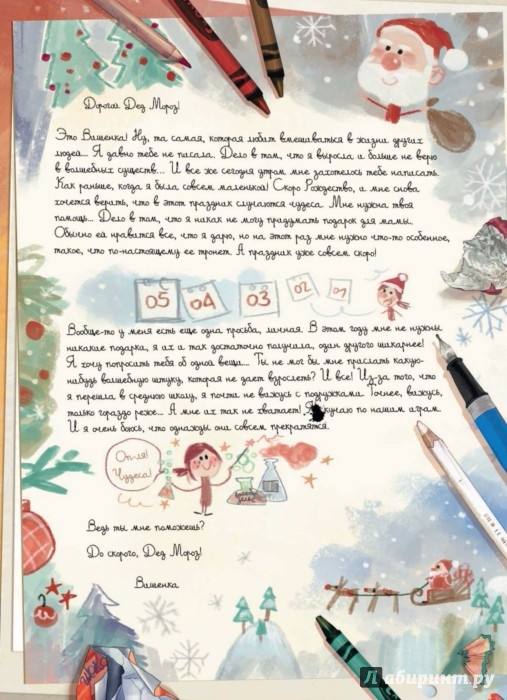 Дорогой Дед Мороз!
Это Вишенка! Ну, та самая, которая любит вмешиваться в жизни других
людей... Я давно тебе не писала. Дело в том, что я выросла и больше не верю
в волшебных существ... И все же сегодня утром мне захотелось тебе написать.
Как раньше, когда я была совсем маленькой! Скоро Рождество, и мне снова
хочется верить, что в этот праздник случаются чудеса. Мне нужна твоя
помощь... Дело в том, что я никак не могу придумать подарок для мамы.
Обычно ей нравится все, что я дарю, но на этот раз мне нужно что-то особенное,
такое, что по-настоящему ее тронет. А праздник уже совсем скоро!
05 04 03 02 01
Вообще-то у меня есть еще одна просьба, личная. В этом году мне не нужны
никакие подарки, я их и так достаточно получила, один другого шикарнее!
Я хочу попросить тебя об одной вещи... Ты не мог бы мне прислать какую-
нибудь волшебную штуку, которая не дает взрослеть? И все! Из-за того, что
я перешла в среднюю школу, я почти не вижусь с подружками. Точнее, вижусь,
только гораздо реже... А мне их так не хватает! Я скучаю по нашим играм.
И я очень боюсь, что однажды они совсем прекратятся.
Опля!
Чудеса!
Ведь ты мне поможешь?
До скорого, Дед Мороз!
Вишенка
Лабиринт.ру